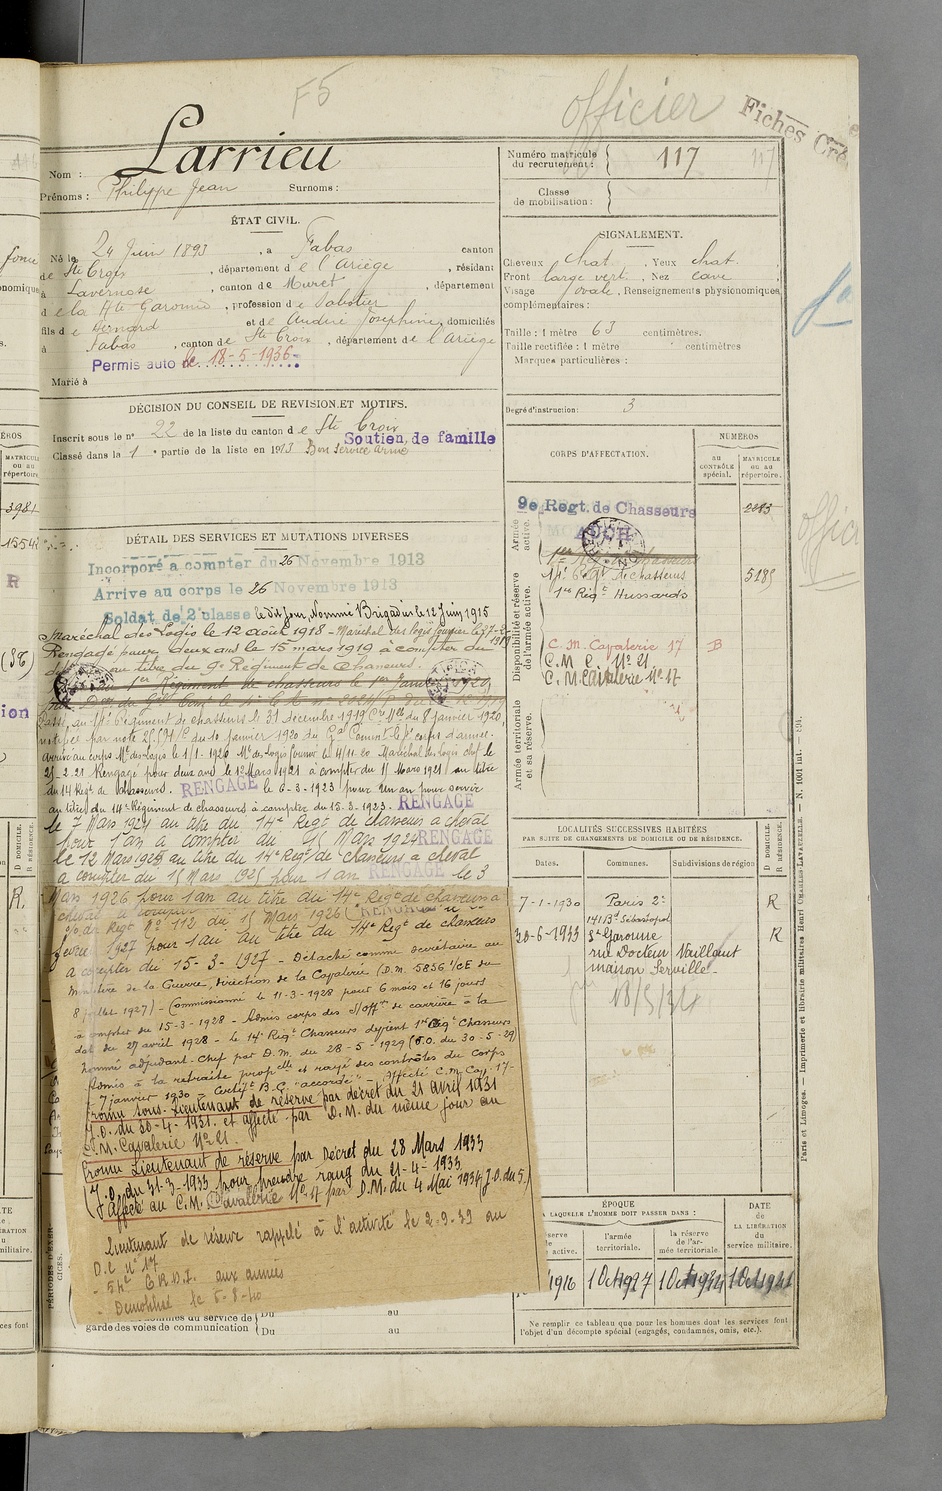 F5
officier
Fiches
Nom : Larrieu
Prénoms : Philippe Jean Surnoms :
Numéro matricule du recrutement : 117
Classe de mobilisation :
ÉTAT CIVIL.
Né le 24 Juin 1893, à Fabas canton
de Ste Croix, département de l'Ariège, résidant
à Lavernose, canton de Muret, département
de la Hte Garonne, profession de Sabotier
fils de Bernard et de Audirié Joséphine, domiciliés
à Fabas, canton de Ste Croix, département de l'Ariège
Permis auto le 18-5-1936
Marié à
SIGNALEMENT.
Cheveux chat. Yeux chat.
Front large vert. Nez cave
Visage ovale, Renseignements physionomiques
complémentaires :
Taille : 1 mètre 63 centimètres.
Taille rectifiée : 1 mètre centimètres
Marques particulières :
Degré d'instruction : 3
DÉCISION DU CONSEIL DE REVISION ET MOTIFS.
Inscrit sous le n° 22 de la liste du canton de Ste Croix
Soutien de famille
Classé dans la 1 e partie de la liste en 1913 Bon Service armé
DÉTAIL DES SERVICES ET MUTATIONS DIVERSES
Incorporé a compter du 26 Novembre 1913
Arrivé au corps le 26 Novembre 1913
Soldat de 2e classe le dit jour, Nommé Brigadier le 12 Juin 1915
Maréchal des Logis le 12 août 1918 - Maréchal des logis fourrier le 27-2-1919
Rengagé pour deux ans le 15 mars 1919 à compter du
au titre du 9e Régiment de Chasseurs.
1er Régiment de chasseurs le 1er Janvier 1920
Passé au 14e Régiment de chasseurs le 31 décembre 1919 Cre Mlle du 8 Janvier 1920,
notifiée par note du 10 janvier 1920 du Gal Commt le corps d'armée.
Arrivé au corps Mal des Logis le 1/1-1920 Mal des Logis fourrier le 4/11-20 Maréchal des logis chef le
21-2-21 Rengagé pour deux ans le 12 Mars 1921 à compter du 15 Mars 1921 au titre
du 14 Regt de Chasseurs. RENGAGÉ le 6-3-1923 pour Un an pour servir
au titre du 14e Régiment de chasseurs à compter du 15-3-1923. RENGAGÉ
le 7 Mars 1924 au titre du 14e Regt de chasseurs à cheval
pour 1 an à compter du 15 Mars 1924 RENGAGÉ
le 12 Mars 1925 au titre du 14e Regt de chasseurs à cheval
à compter du 15 Mars 1925 pour 1 an RENGAGÉ le 3
Mars 1926 pour 1 an au titre du 14e Regt de chasseurs à
cheval à compter du 15 Mars 1926 RENGAGÉ
1927 pour 1 an au titre du 14e Regt de chasseurs
à compter du 15-3-1927 - Détaché comme secrétaire au
ministère de la Guerre, direction de la Cavalerie (D.M. 5856 1/CE du
8 juillet 1927) - Commissionné le 11-3-1928 pour 6 mois et 16 jours
à compter du 15-3-1928 - Admis corps des S/offers de carrière à la
date du 27 avril 1928 - le 14e Regt Chasseurs devient 1er Regt Chasseurs
nommé adjudant-Chef par D.M. du 28-5-1929 (J.O. du 30-5-29)
Admis à la retraite propelle et rayé des contrôles du Corps
7 janvier 1930 - Certift B.C. "accordé" - Affecté C.M. Cav. 17-
Promu Sous-Lieutenant de réserve par décret du 21 Avril 1931
J.O. du 30-4-1931. et affecté par D.M. du même jour au
C.M. Cavalerie N° 21.
Promu Lieutenant de réserve par Décret du 28 Mars 1933
(J.O. du 31-3-1933 pour prendre rang du 21-4-1933
Affecté au C.M. Cavalerie N° 17 par D.M. du 4 Mai 1934 (J.O. du 5.)
Lieutenant de réserve rappelé à l'activité le 2-9-39 au
D.C n° 17
- 54e G.R.D.I. aux armées
- Démobilisé le 6-8-40
garde des voies de communication
Du au
Du au
CORPS D'AFFECTATION.
NUMÉROS
au CONTRÔLE spécial.
MATRICULE ou au répertoire.
Armée active.
Disponibilité et réserve de l'armée active.
Armée territoriale et sa réserve.
9e Regt. de Chasseurs
AUCH
14e Regt de chasseurs 5185
1er Régt Hussards
C. M. Cavalerie 17 B
C. M C. N° 21.
C. M. Cavalerie N° 17
LOCALITÉS SUCCESSIVES HABITÉES
PAR SUITE DE CHANGEMENTS DE DOMICILE OU DE RÉSIDENCE.
Dates. Communes. Subdivisions de région
D. DOMICILE. R. RÉSIDENCE.
7-1-1930 Paris 2e R
141 Bd Sébastopol
30-6-1933 St Garonne R
rue Docteur Vaillant
maison Serville
18/5/34
ÉPOQUE
A LAQUELLE L'HOMME DOIT PASSER DANS :
DATE de LA LIBÉRATION du service militaire.
l'armée territoriale.
la réserve de l'armée territoriale.
1916
1 Oct 1927
Ne remplir ce tableau que pour les hommes dont les services font
l'objet d'un décompte spécial (engagés, condamnés, omis, etc.).
Paris et Limoges. — Imprimerie et librairie militaires Henri CHARLES-LAVAUZELLE.